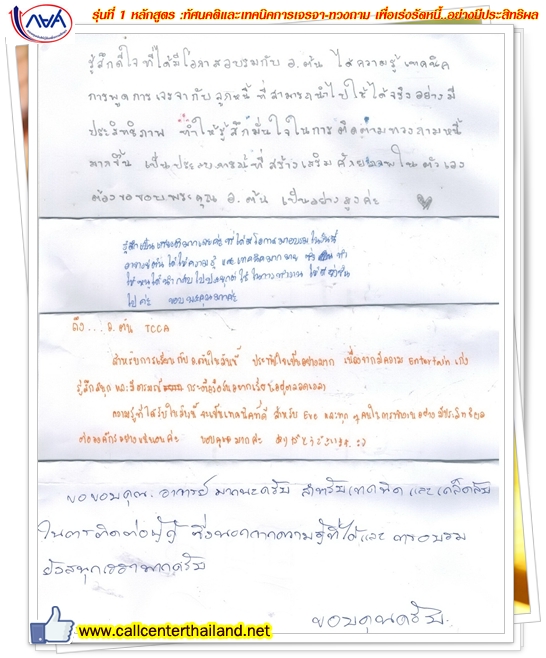 รุ่นที่ 1 หลักสูตร :ทัศนคติและเทคนิคการเจรจา-ทวงถาม เพื่อเร่งรัดหนี้..อย่างมีประสิทธิผล
รู้สึกดีใจ ที่ได้มีโอกาสอบรมกับ อ.ต้น ได้ความรู้ เทคนิค
การพูด การเจรจา กับลูกหนี้ ที่สามารถนำไปใช้ได้จริง อย่างมี
ประสิทธิภาพ ทำให้รู้สึกมั่นใจในการติดตามทวงถามหนี้
มากขึ้น เป็นประสบการณ์ที่สร้างเสริมศักยภาพในตัวเอง
ต้องขอขอบพระคุณ อ.ต้น เป็นอย่างสูงค่ะ
รู้สึกเป็นเกียรติมากเลยค่ะ ที่ได้มีโอกาสมาอบรมในวันนี้
อาจารย์ต้น ได้ให้ความรู้ และเทคนิคมากมาย
ให้หนูได้นำกลับไปประยุกต์ใช้ในการทำงาน ให้ดีกว่าขึ้น
ไปค่ะ ขอบพระคุณมากค่ะ
ถึง... อ.ต้น TCCA
สำหรับการเรียนกับ อ.ต้นในวันนี้ ประทับใจเป็นอย่างมาก เนื่องจากมีความ Entertain เก่ง
รู้สึกสนุก และมีอารมณ์ กระตือรือร้นอยากเรียนอยู่ตลอดเวลา
ความรู้ที่ได้รับในวันนี้ จะเป็นเทคนิคที่ดี สำหรับ Eve และทุกๆ คนในการทำงานอย่างมีประสิทธิผล
ต่อองค์กรอย่างแน่นอนค่ะ ขอบคุณมากค่ะ
ขอขอบคุณ อาจารย์ มากนะครับ สำหรับเทคนิค และ เคล็ดลับ
ในการติดต่อผู้กู้ ซึ่งนอกจากความรู้ที่ได้และ การอบรม
ยังสนุกเฮฮามากครับ
ขอบคุณครับ
www.callcenterthailand.net